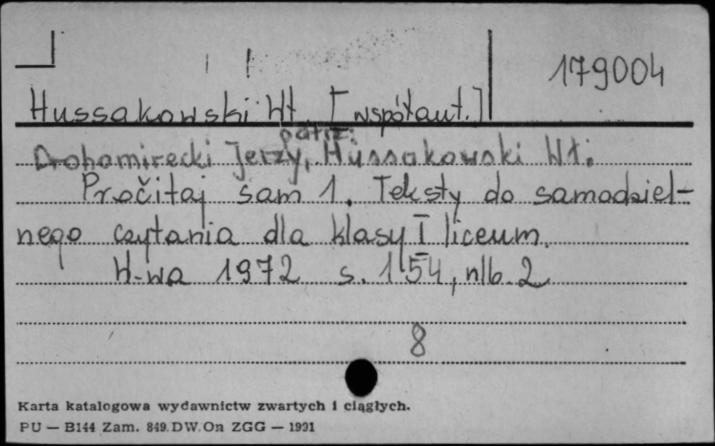 179004
Hussakowski Wł [współaut.]
patrz:
Drohomirecki Jerzy, Hussakowski Wł.
Pročitaj sam 1. Teksty do samodziel-
nego czytania dla klasy I liceum.
W-wa 1972 s. 154, nlb. 2
8
Karta katalogowa wydawnictw zwartych i ciągłych.
PU — B144 Zam. 849.DW.On ZGG — 1991